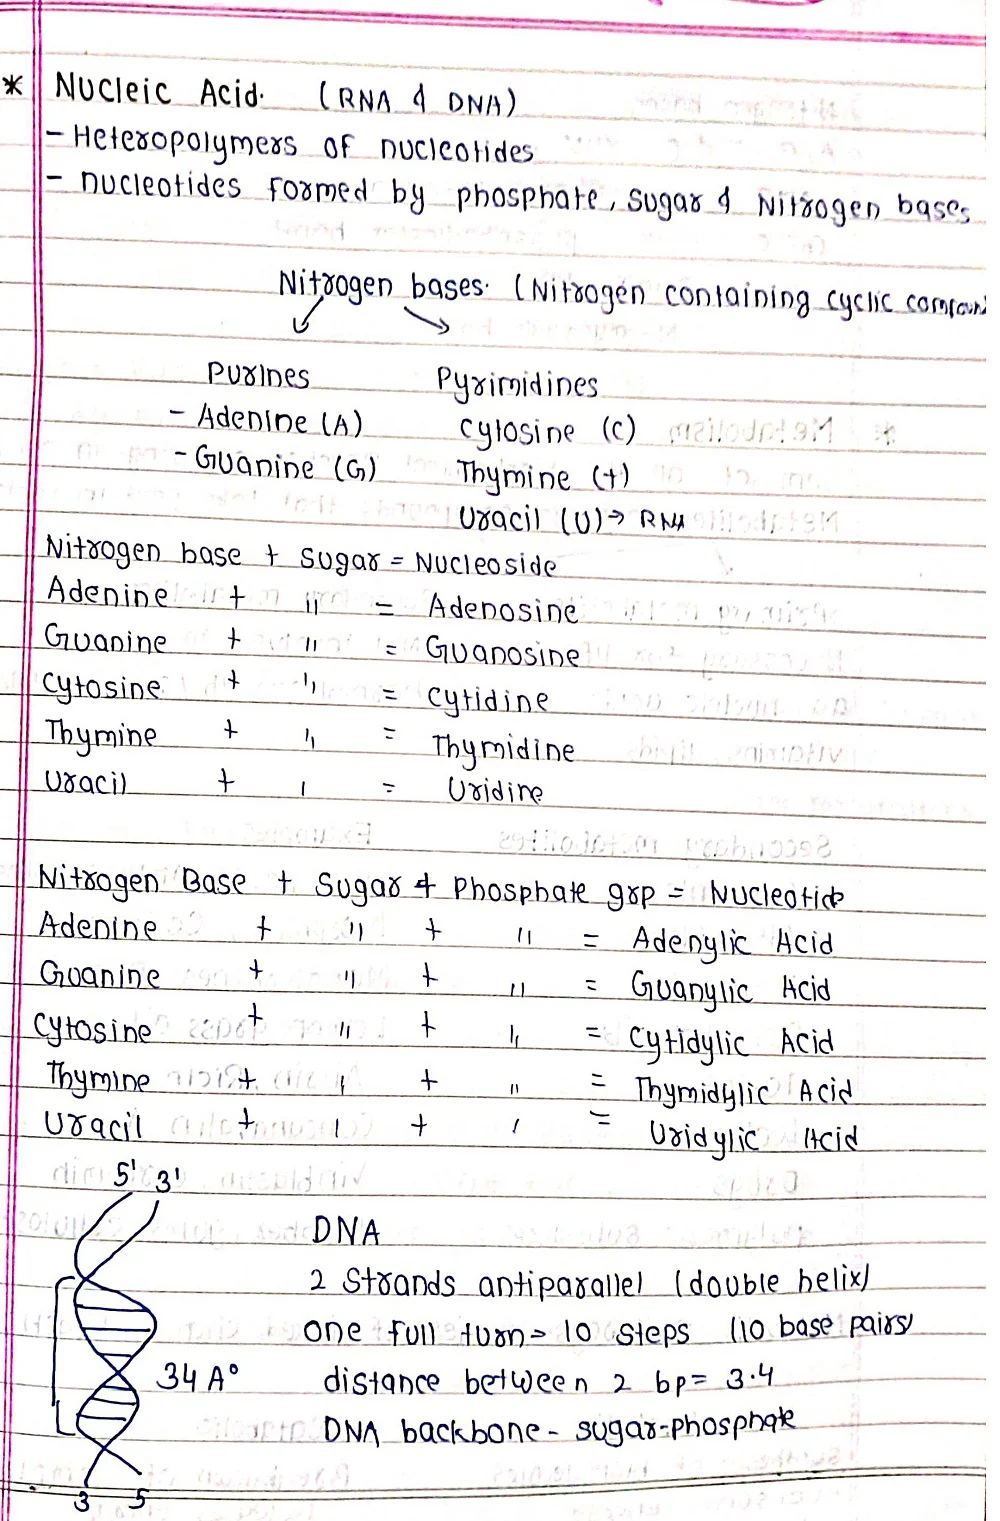 * Nucleic Acid. (RNA & DNA)
- Heteropolymers of nucleotides
- nucleotides formed by phosphate, sugar & Nitrogen bases
Nitrogen bases. (Nitrogen containing cyclic compoun
Purines Pyrimidines
- Adenine (A) Cytosine (C)
- Guanine (G) Thymine (t)
Uracil (U) → RNA
Nitrogen base + sugar = Nucleoside
Adenine + " = Adenosine
Guanine + " = Guanosine
Cytosine + " = Cytidine
Thymine + " = Thymidine
Uracil + " = Uridine
Nitrogen Base + Sugar + Phosphate grp = Nucleotide
Adenine + " + " = Adenylic Acid
Guanine + " + " = Guanylic Acid
Cytosine + " + " = Cytidylic Acid
Thymine + " + " = Thymidylic Acid
Uracil + " + " = Uridylic Acid
5' 3'
DNA
2 Strands antiparallel (double helix)
one full turn = 10 steps (10 base pairs)
34 A° distance between 2 bp = 3.4
DNA backbone - sugar-phosphate
3 5